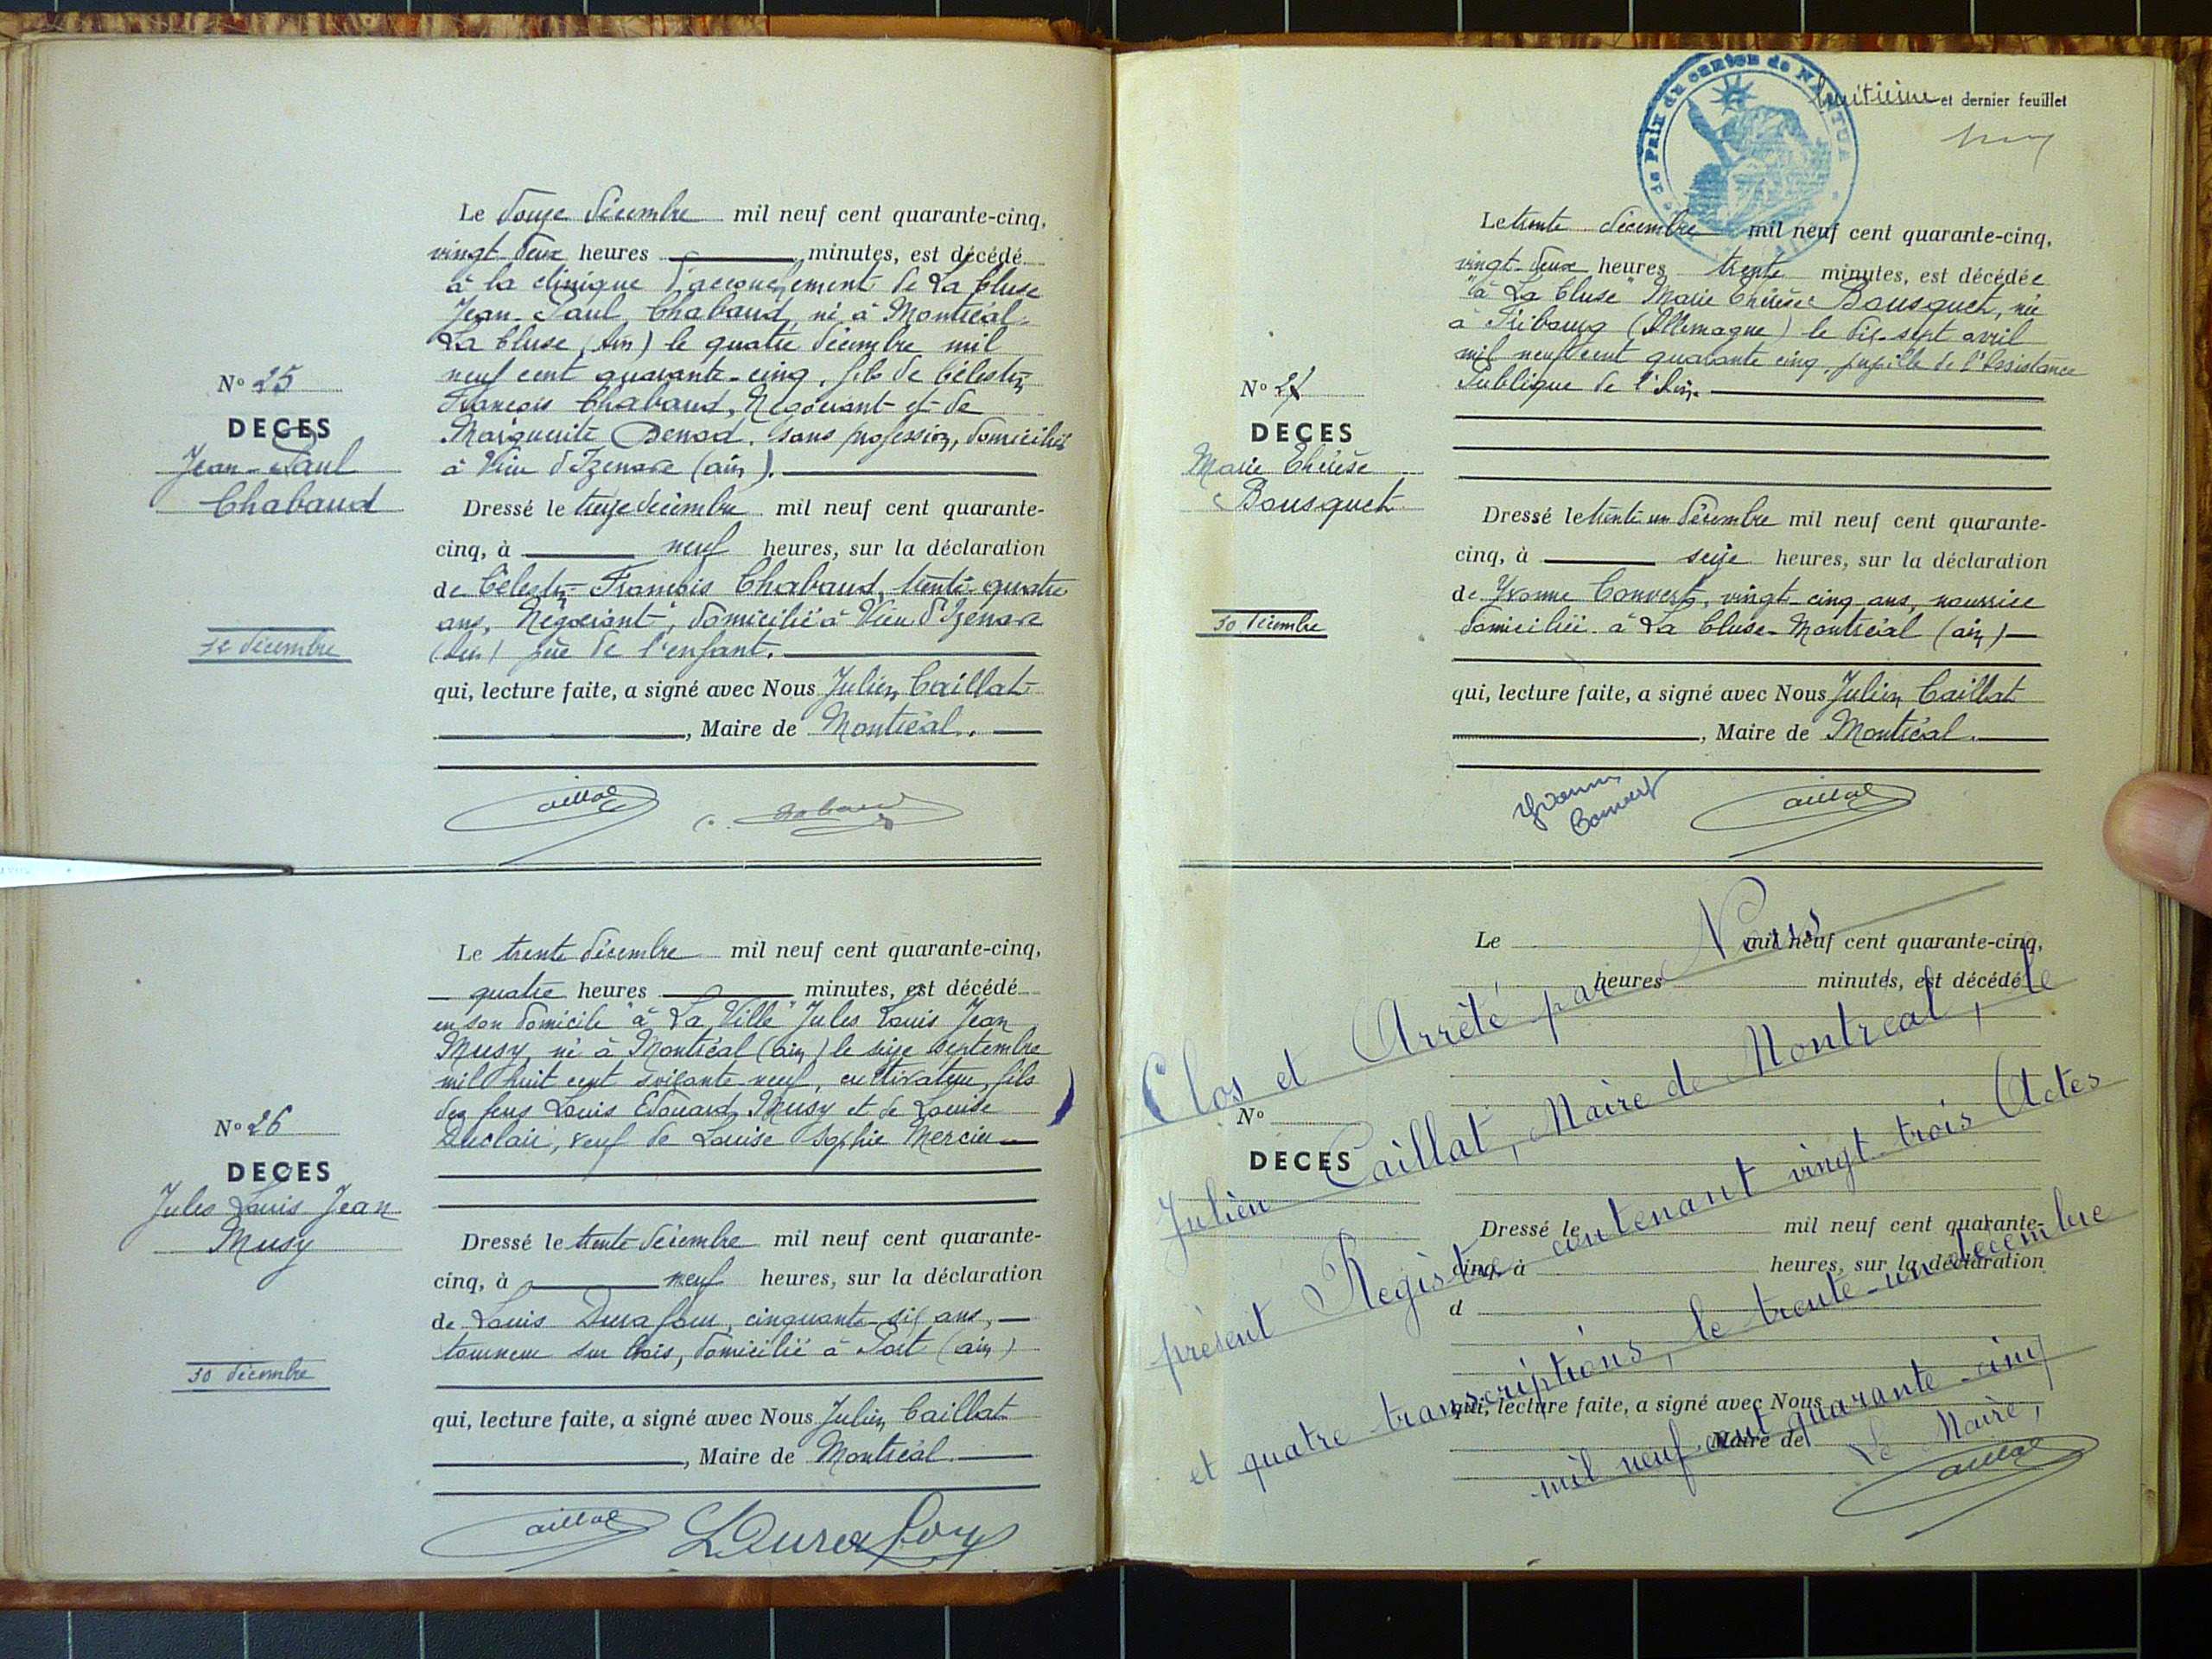 Le douze décembre mil neuf cent quarante-cinq,
vingt deux heures minutes, est décédé
à la clinique d'accouchement de La Cluse
Jean-Paul Chabaud, né à Montréal-
La Cluse (Ain) le quatre décembre mil
neuf cent quarante-cinq, fils de Célestin
François Chabaud, Négociant et de
Marguerite sans profession, domiciliés
à Vieu d'Izenave (ain).
N° 25
DECES
Jean-Paul
Chabaud
Dressé le treize décembre mil neuf cent quarante-
cinq, à neuf heures, sur la déclaration
de Célestin François Chabaud, trente quatre
ans, Négociant, domicilié à Vieu d'Izenave
(Ain) père de l'enfant.
12 décembre
qui, lecture faite, a signé avec Nous Julien Caillat
, Maire de Montréal.
Caillat
Le trente décembre mil neuf cent quarante-cinq,
quatre heures minutes, est décédé
en son domicile "à La Ville" Jules Louis Jean
Musy, né à Montréal (ain) le seize septembre
mil huit cent soixante-neuf, cultivateur, fils
des feus Louis Edouard Musy et de Louise
veuf de Louise Sophie Mercier
N° 26
DECES
Jules Louis Jean
Musy
Dressé le trente décembre mil neuf cent quarante-
cinq, à neuf heures, sur la déclaration
de Louis Durafour, cinquante-six ans,
tourneur sur bois, domicilié à Port (ain)
30 décembre
qui, lecture faite, a signé avec Nous Julien Caillat
, Maire de Montréal.
Caillat L Durafour
de Paix du canton de NANTUA
huitième et dernier feuillet
Le trente décembre mil neuf cent quarante-cinq,
vingt-deux heures trente minutes, est décédée
"à La Cluse" Marie Thérèse Bousquet, née
à Fribourg (Allemagne) le dix-sept avril
mil neuf cent quarante cinq, pupille de l'Assistance
Publique de l'Ain.
N° 27
DECES
Marie Thérèse
Bousquet
Dressé le trente un décembre mil neuf cent quarante-
cinq, à seize heures, sur la déclaration
de Yvonne Convert, vingt-cinq ans, nourrice
domiciliée à La Cluse-Montréal (ain)
30 décembre
qui, lecture faite, a signé avec Nous Julien Caillat
, Maire de Montréal.
Yvonne
Convert
Caillat
Le mil neuf cent quarante-cinq,
heures minutes, est décédé
N°
DECES
Dressé le mil neuf cent quarante-
cinq, à heures, sur la déclaration
d
qui, lecture faite, a signé avec Nous
Maire de
Clos et Arrêté par Nous
Julien Caillat, Maire de Montréal, le
présent Registre contenant vingt-trois Actes
et quatre transcriptions, le trente-un décembre
mil neuf cent quarante-cinq
Le Maire,
Caillat